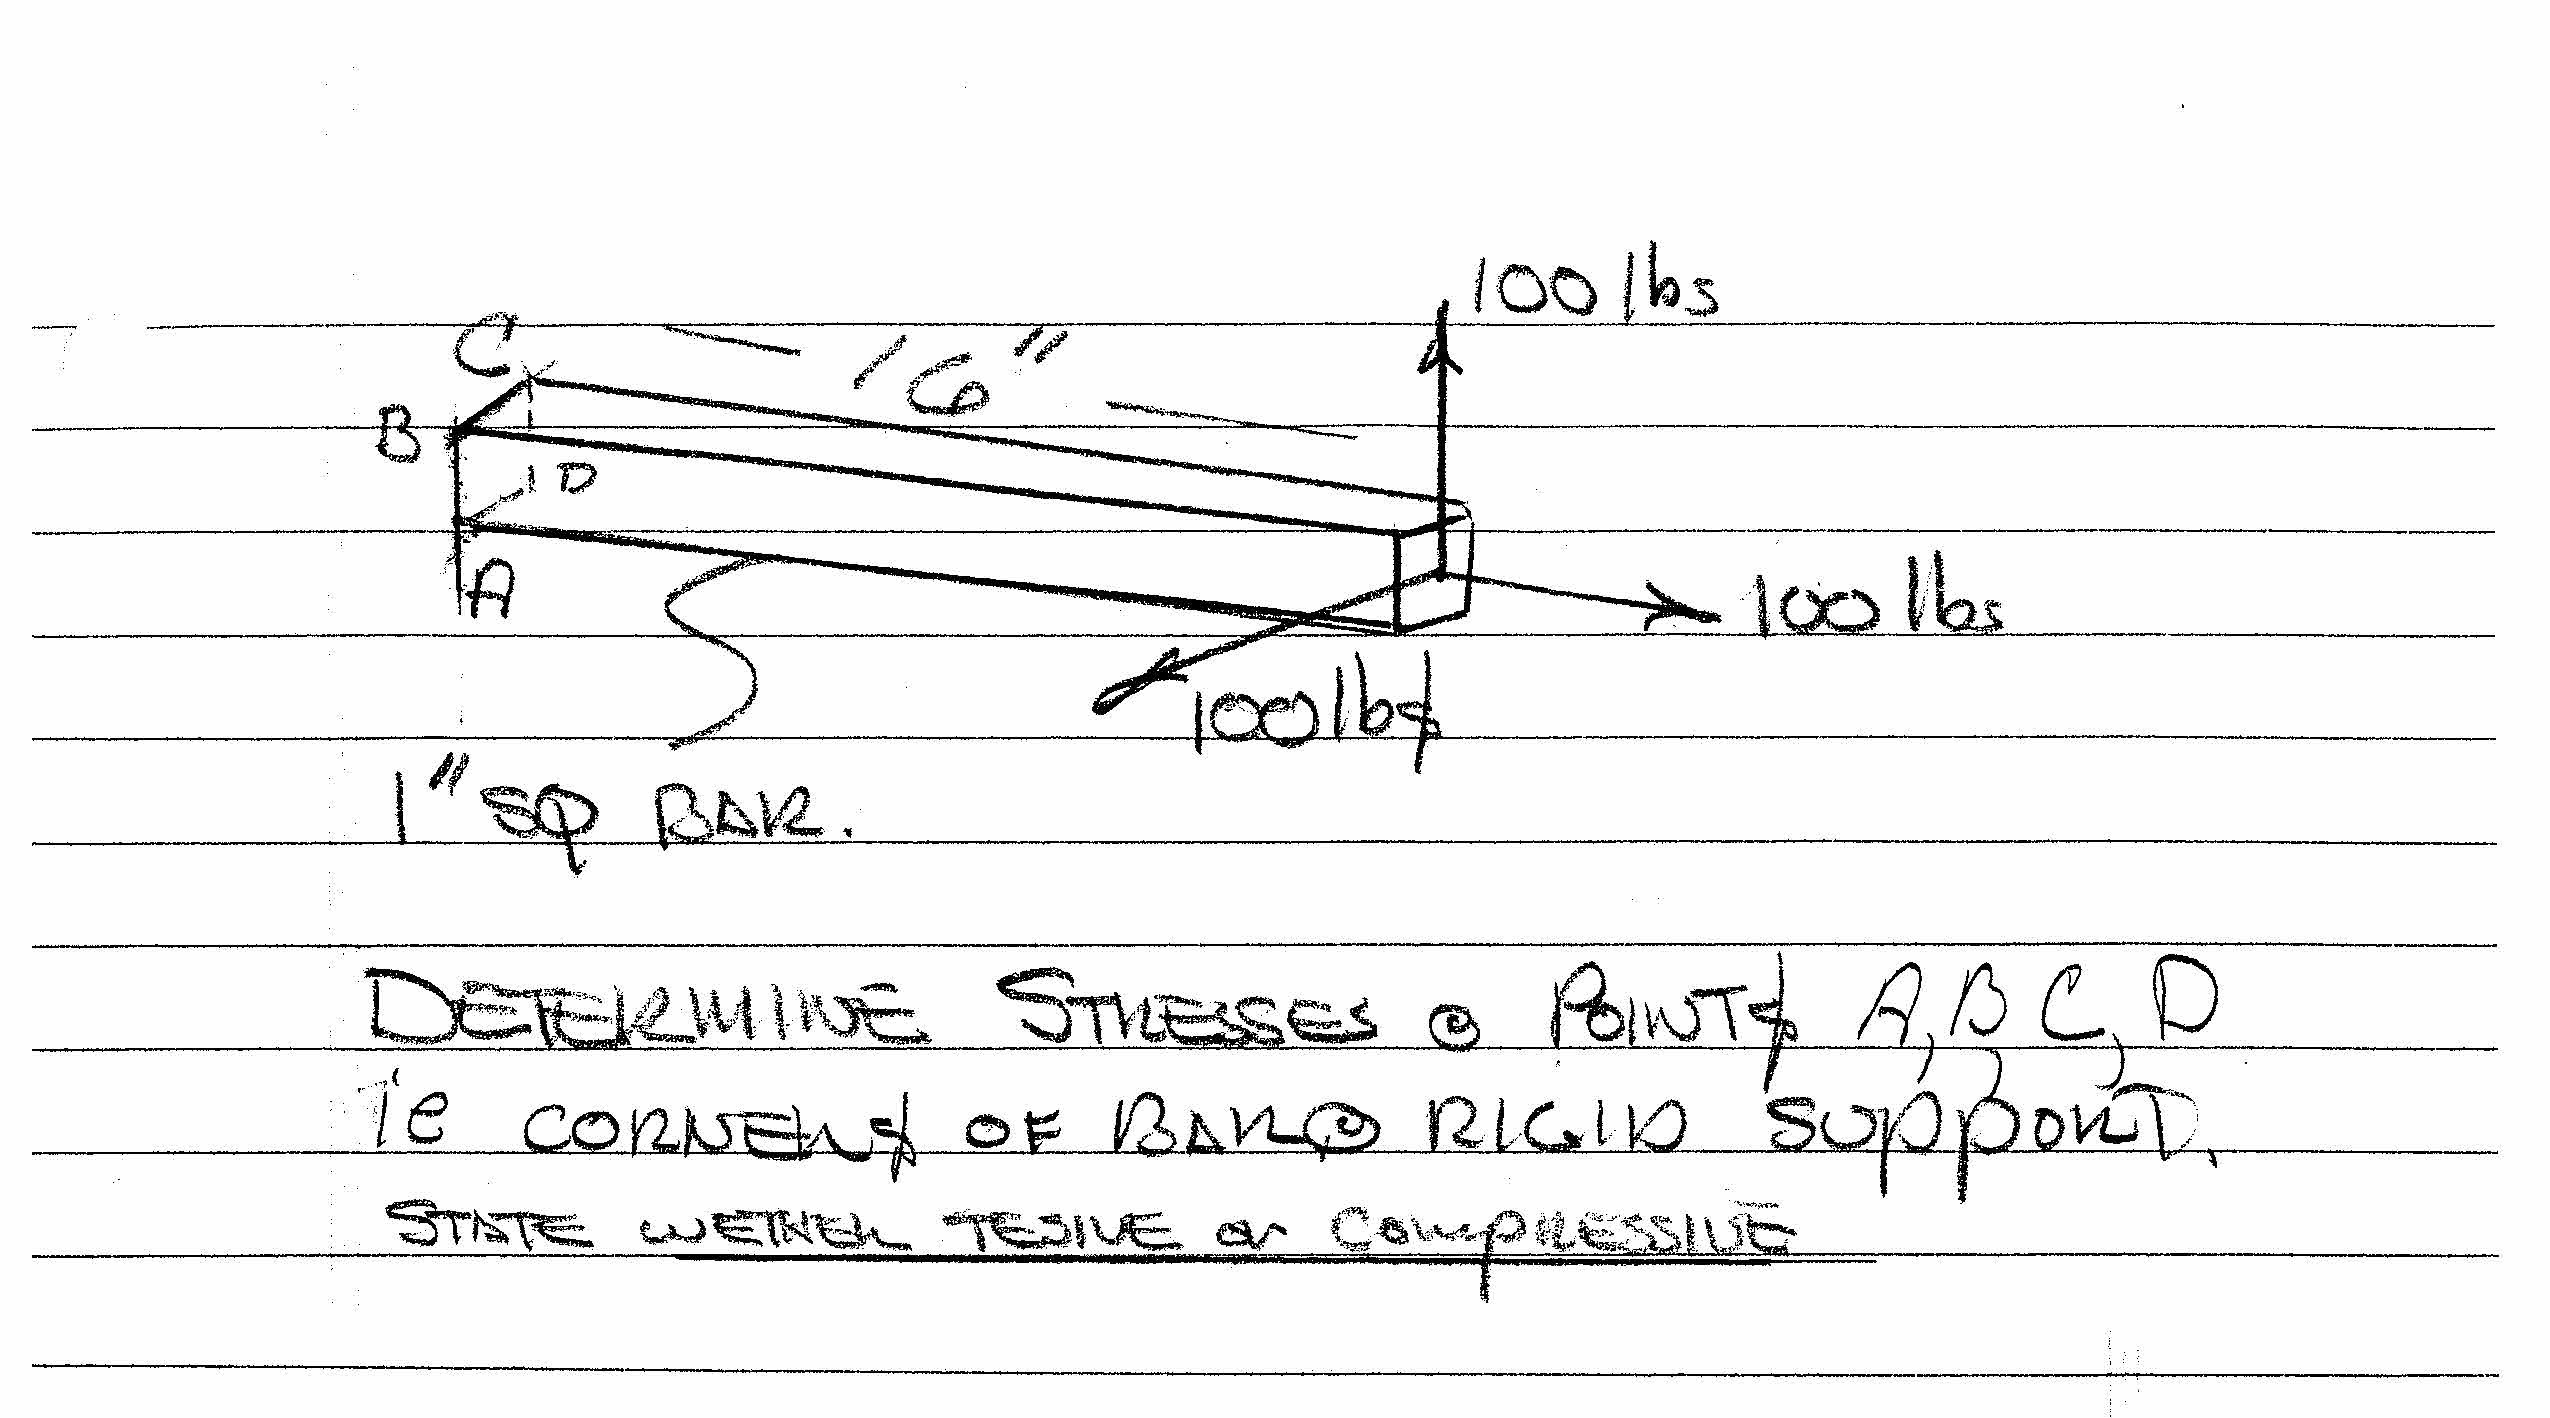 100 lbs
C
16"
B
D
A
100 lbs
100 lbs
1" SQ BAR.
DETERMINE STRESSES @ POINTS A, B, C, D
ie CORNERS OF BAR @ RIGID SUPPORT.
STATE WETHER TESIVE or COMPRESSIVE